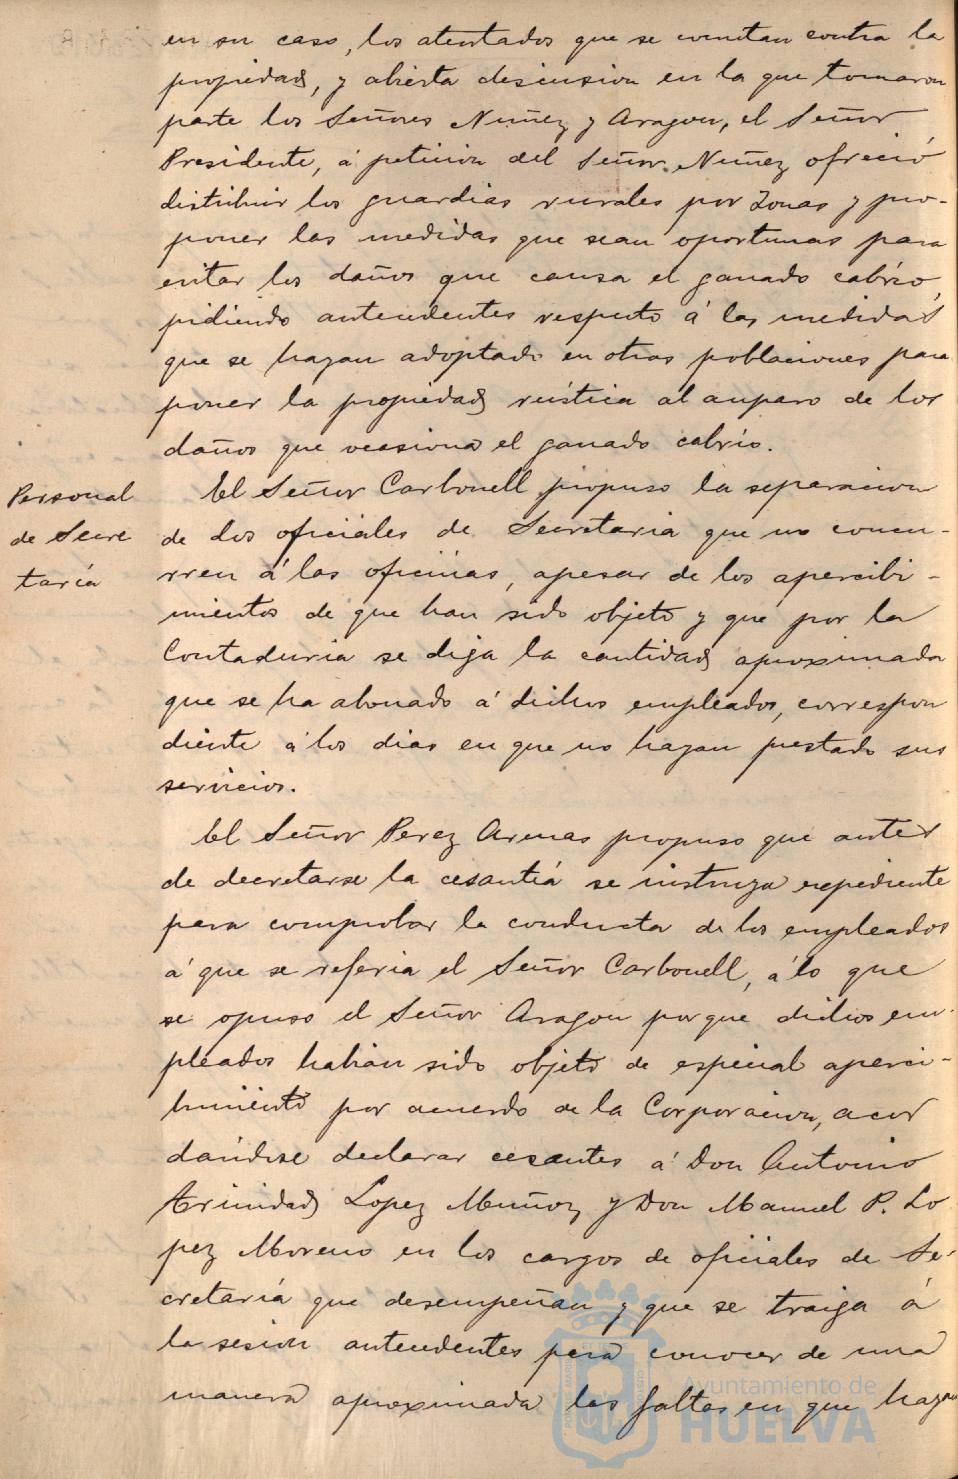 en su caso, los atentados que se cometan contra la
propiedad, y abierta discusion en la que tomaron
parte los Señores Nuñez y Aragon, el Señor
Presidente, á peticion del Señor Nuñez ofreció
distribuir los guardias rurales por zonas y pro-
poner las medidas que sean oportunas para
evitar los daños que causa el ganado cabrío,
pidiendo antecedentes respecto á las medidas
que se hayan adoptado en otras poblaciones para
poner la propiedad rústica al amparo de los
daños que ocasiona el ganado cabrio.
Personal
de Secre
taría
El Señor Carbonell propuso la separacion
de los oficiales de Secretaria que no concu-
rren á las oficinas, apesar de los apercibi-
mientos de que han sido objeto y que por la
Contaduria se diga la cantidad aproximada
que se ha abonado á dichos empleados, correspon
diente á los dias en que no hayan prestado sus
servicios.
El Señor Perez Arenas propuso que antes
de decretarse la cesantía se instruya expediente
para comprobar la conducta de los empleados
á que se referia el Señor Carbonell, á lo que
se opuso el Señor Aragon porque dichos em-
pleados habian sido objeto de especial aperci-
bimiento por acuerdo de la Corporacion, acor
dándose declarar cesantes á Don Antonio
Trinidad Lopez Muñoz y Don Manuel P. Lo
pez Moreno en los cargos de oficiales de Se-
cretaría que desempeñan y que se traiga á
la sesion antecedentes para conocer de una
manera aproximada las faltas en que hayan
Ayuntamiento de
HUELVA